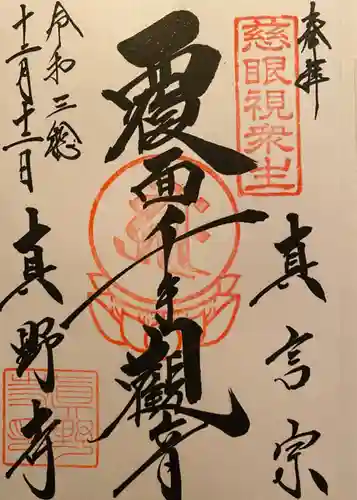 奉拝
慈眼視衆生
真言宗
覆面千手觀音
令和三年
十二月十二日
真野寺
真野寺